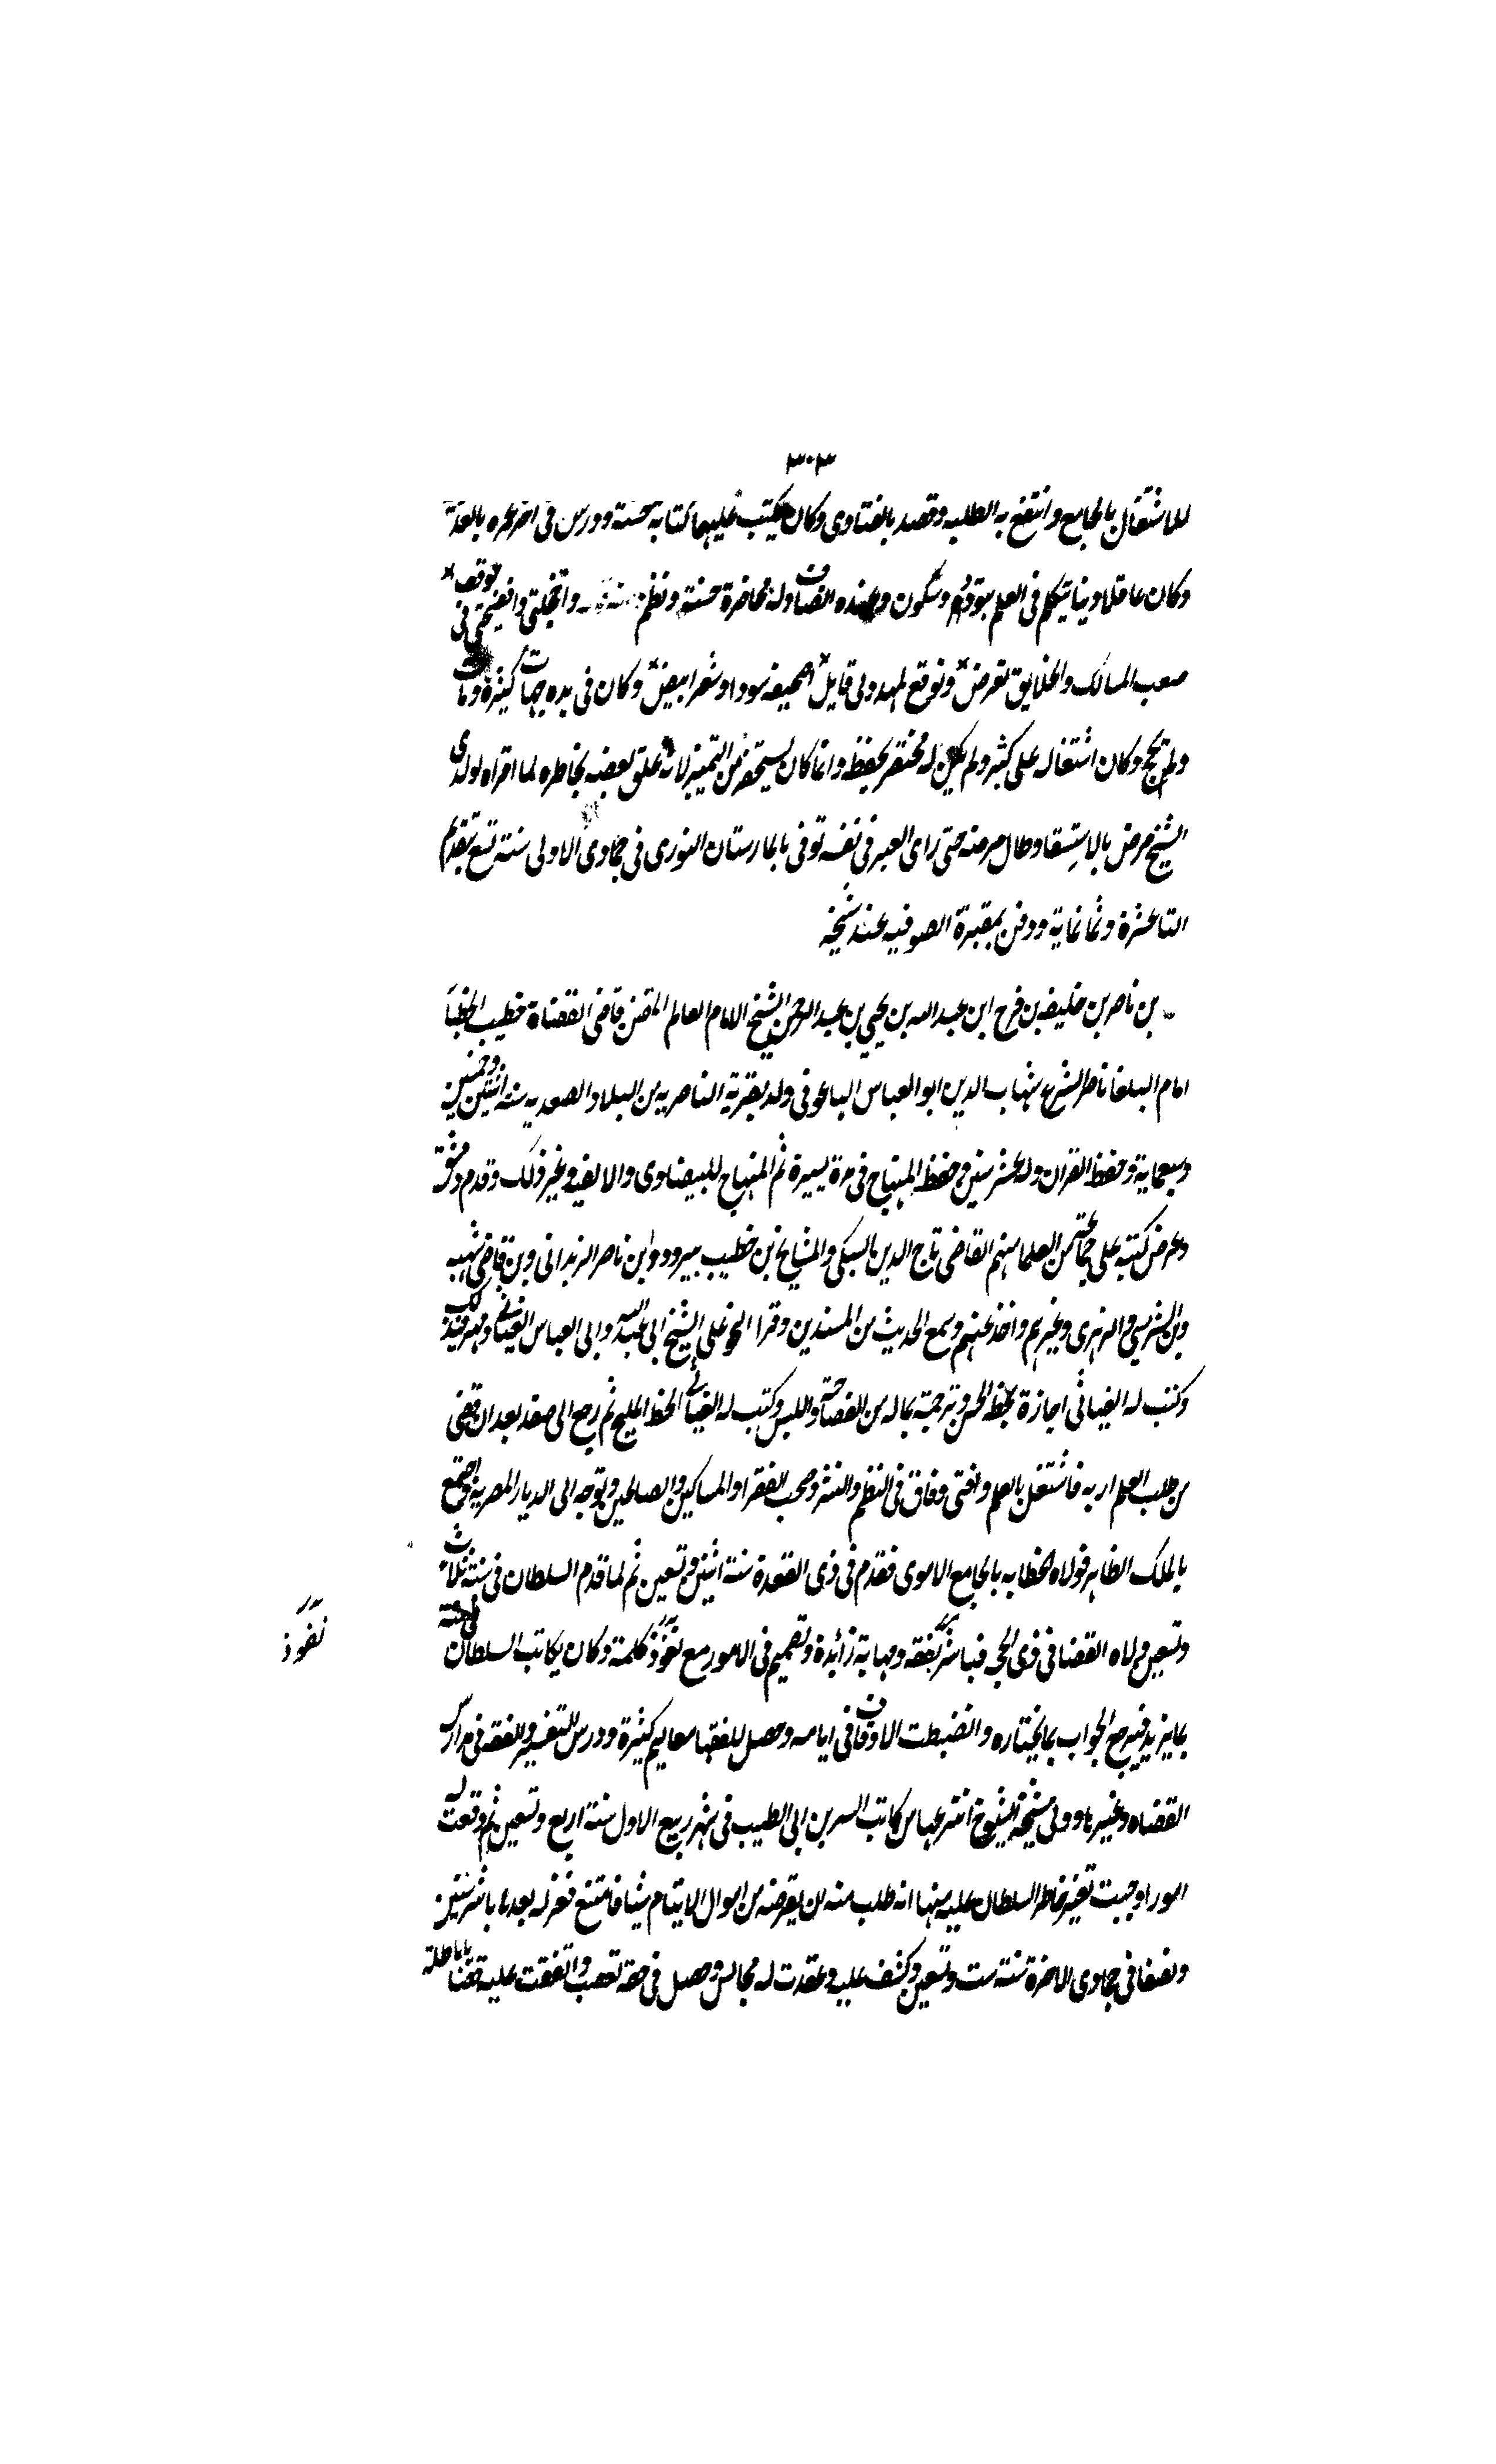 ٣٠٣
للاشتغال بالجامع وانتفع به الطلبه وقصد بالفتاوى وكان يكتب عليها كتابة حسنة ودرس فى اخر عمره
وكان عاقلا دينا يتكلم فى العلم بتؤدة وسكون وعنده انصاف وله محاضرة حسنة ونظم
صعب المسالك والخلايق تعرض وتوقع لمهدولى قايل صحيفه سودا وشعر ابيض وكان فى يده جهات كثيرة ومات
ولم يحج وكان اشتغاله على كثير ولم يكن له مختصر يحفظ وانما كان يستحضر من التمييز لانه علق بعضه بخاطره لما اقراه لولدى
الشيخ مرض بالاستسقا وطال مرضه حتى راى العبر فى نفسه توفى بالمارستان النورى فى جمادى الاولى سنة تسع بتقديم
التا عشرة وثمانماية ودفن بمقبرة الصوفيه عند شيخه
بن ناصر بن خليفه بن فرح ابن عبد الله بن يحيى بن عبد الرحمن الشيخ الامام العالم المفنن قاضى القضاة خطيب الخطبا
امام البلغا ناصر الشرع شهاب الدين ابو العباس الباعونى ولد بقرية الناصريه من البلاد الصفديه سنة اثنتين وخمسين
وسبعماية وحفظ القران وله عشر سنين وحفظ المنهاج فى مدة يسيرة ثم المنهاج للبيضاوى والالفيه وغير ذلك وقدم دمشق
وعرض كتبه على جماعة من العلما منهم القاضى تاج الدين السبكى والمشايخ بن خطيب يبرود وابن ناصر الزبدانى وبن قاضى شهبه
وابن الشريشى والزهرى وغيرهم واخذ عنهم وسمع الحديث من المسندين وقرا النحو على الشيخ ابى عبد الله وابى العباس العنابى وغير ذلك
وكتب له العنابى اجازة بخطه الحسن وترجمة بماله من الفصاحة واللسن وكتب له العنابى الخط المليح ثم رجع الى صفد بعد ان قضى
من طلب العلم اربه فاشتغل بالعلم وافتى وفاق فى النظم والنثر وصحب الفقرا والمساكين والصالحين وتوجه الى الديار المصريه واجتمع
بالملك الظاهر فولاه الخطابه بالجامع الاموى فقدم فى ذى القعدة سنة اثنتين وتسعين ثم لما قدم السلطان فى سنة ثلاث
وتسعين ولاه القضا فى ذى الحجه فباشر بعفه ومهابة زائدة وتصميم فى الامور مع نفوذ كلمة وكان يكاتب السلطان
نفوذ
بما يريد فيرجع الجواب بما يختاره وانضبطت الاوقاف فى ايامه وحصل للفقها معاليم كثيرة ودرس للتفسير والفقه فى مدارس
القضاه وغيرها وولى مشيخة الشيوخ انتزعها من كاتب السر بن ابى الطيب فى شهر ربيع الاول سنة اربع وتسعين ثم وقعت له
امور اوجبت تغير خاطر السلطان عليه منها انه طلب منه ان يقرضه من اموال الايتام شيئا فامتنع فعزله بعد ما باشر سنتين
ونصفا فى جمادى الاخرة سنة ست وتسعين وكشف عليه وعقدت له مجالس وحصل فى حقه تعصب واتفقت عليه قضايا باطلة